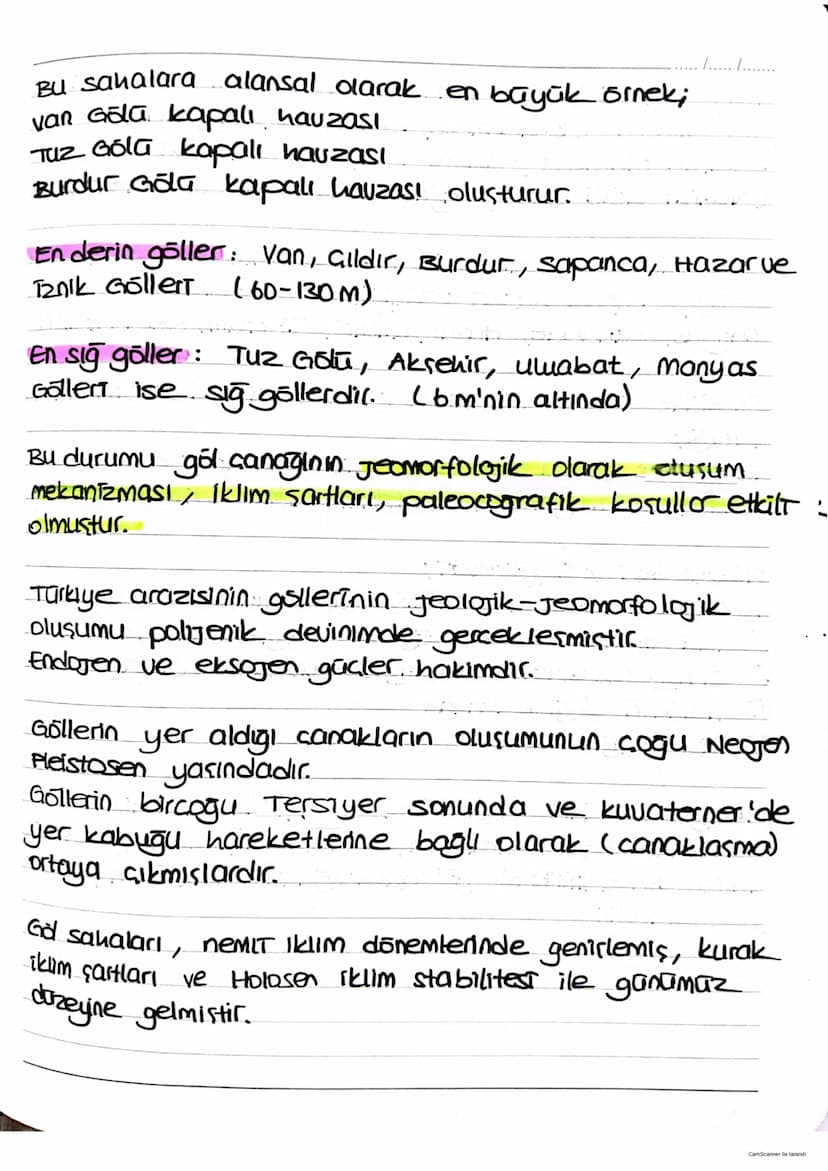 ..... /..... /.......
Bu sahalara alansal olarak en büyük örnek;
Van Gölü kapalı havzası
Tuz Gölü kapalı havzası
Burdur Gölü kapalı havzası oluşturur.
En derin göller: Van, Çıldır, Burdur, Sapanca, Hazar ve
İznik Gölleri (60-130M)
En sığ göller: Tuz Gölü, Akşehir, Uluabat, Manyas
Gölleri ise sığ göllerdir. (6m'nin altında)
Bu durumu göl çanağının jeomorfolojik olarak oluşum
mekanizması, iklim şartları, paleocografik koşullar etkili
olmuştur.
Türkiye arazisinin göllerinin jeolojik-jeomorfolojik
oluşumu polijenik deviniminde gerçekleşmiştir.
Endojen ve eksojen güçler hakimdir.
Göllerin yer aldığı çanakların oluşumunun çoğu Neojen
Pleistosen yaşındadır.
Göllerin birçoğu Tersiyer sonunda ve kuvaterner'de
yer kabuğu hareketlerine bağlı olarak (çanaklaşma)
ortaya çıkmışlardır.
Göl sahaları, nemli iklim dönemlerinde genişlemiş, kurak
iklim şartları ve Holosen iklim stabilitesi ile günümüz
düzeyine gelmiştir.
CamScanner ile tarandı